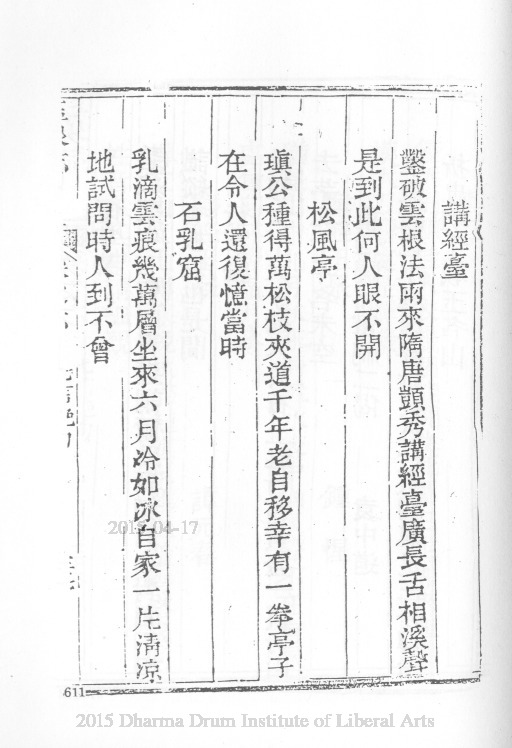 講經臺
鑿破雲根法雨來隋唐顗秀講經臺廣長舌相溪聲
是到此何人眼不開
松風亭
瑱公種得萬松枝夾道千年老自移幸有一拳亭子
在令人還復憶當時
石乳窟
乳滴雲痕幾萬層坐來六月冷如冰自家一片清凉
地試問時人到不曾
611
2015-04-17
2015 Dharma Drum Institute of Liberal Arts